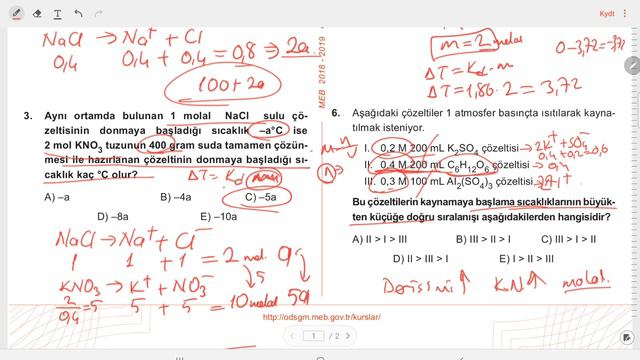 Kydt
NaCl → Na⁺ + Cl
0,4 0,4 + 0,4 = 0,8 ⇒ 2a
100 + 2a
MEB 2018 - 2019
3. Aynı ortamda bulunan 1 molal NaCl sulu çö-
zeltisinin donmaya başladığı sıcaklık –a°C ise
2 mol KNO₃ tuzunun 400 gram suda tamamen çözün-
mesi ile hazırlanan çözeltinin donmaya başladığı sı-
caklık kaç °C olur?
A) –a B) –4a C) –5a
D) –8a E) –10a
NaCl → Na⁺ + Cl⁻
1 1 + 1 = 2 mol.
KNO₃ → K⁺ + NO₃⁻
2/0,4 = 5 5 + 5 = 10 molal 5a
m = 2 molal
0 – 3,72 = –3,72
ΔT = Kd . m
ΔT = 1,86 . 2 = 3,72
6. Aşağıdaki çözeltiler 1 atmosfer basınçta ısıtılarak kayna-
tılmak isteniyor.
I. 0,2 M 200 mL K₂SO₄ çözeltisi → 2K⁺ + SO₄
0,4 + 0,2 = 0,6
II. 0,4 M 200 mL C₆H₁₂O₆ çözeltisi → 0,4
III. 0,3 M 100 mL Al₂(SO₄)₃ çözeltisi
Bu çözeltilerin kaynamaya başlama sıcaklıklarının büyük-
ten küçüğe doğru sıralanışı aşağıdakilerden hangisidir?
A) II > I > III B) III > II > I C) III > I > II
D) II > III > I E) I > II > III
Derişimi ↑ KN ↑ molal.
http://odsgm.meb.gov.tr/kurslar/
1 / 2